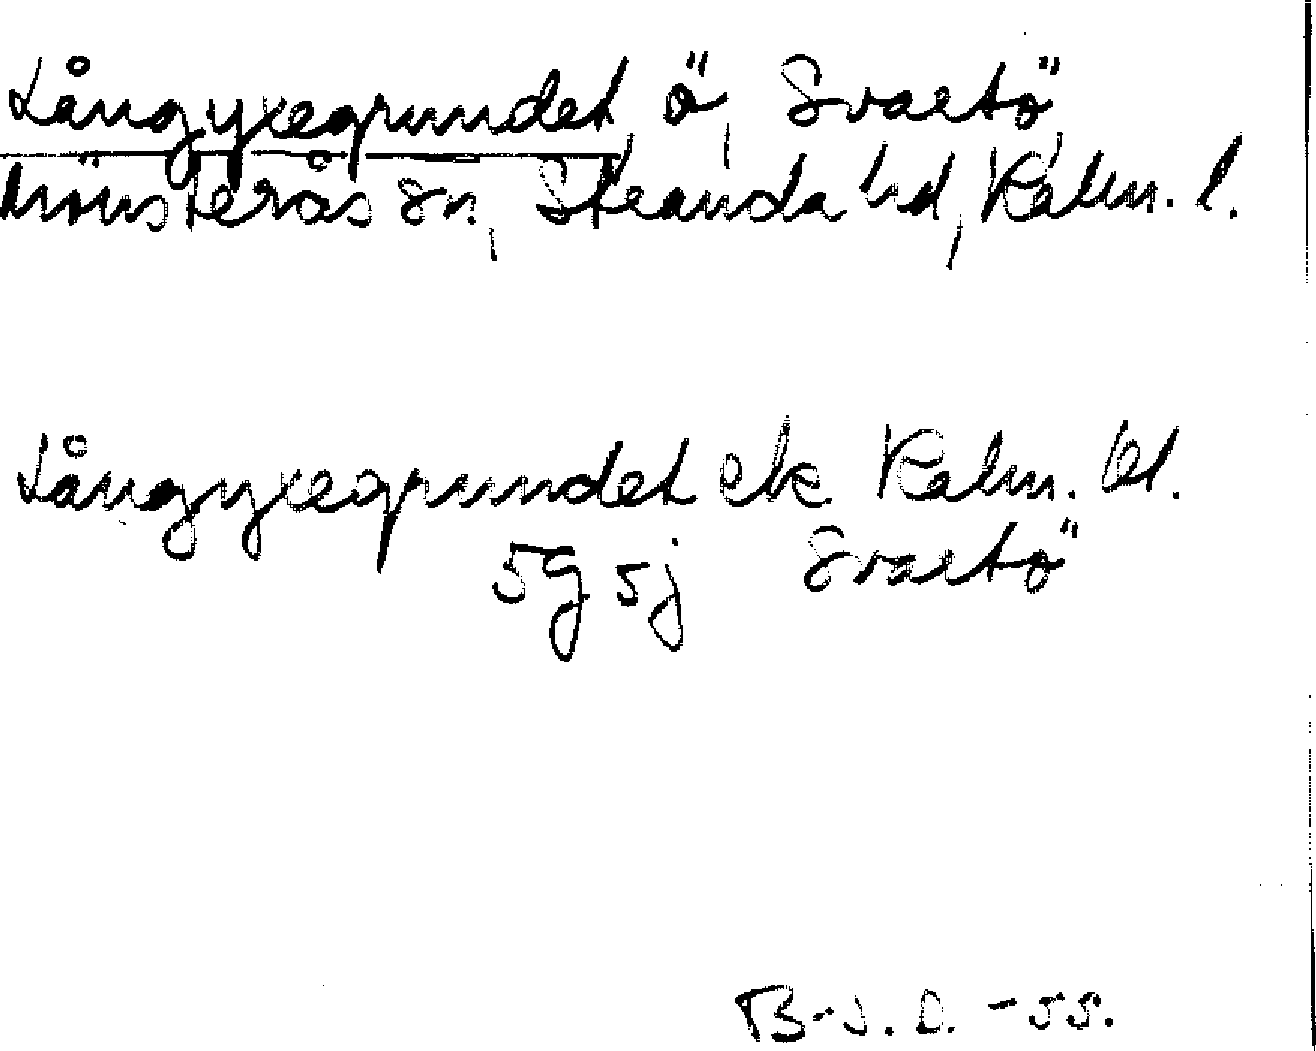 Långyxegrundet, ö, Svartö,
Mönsterås sn, Stranda hd, Kalm. l.
Långyxegrundet ek. Kalm. bl.
5g 5j Svartö
B-J. D. -55.